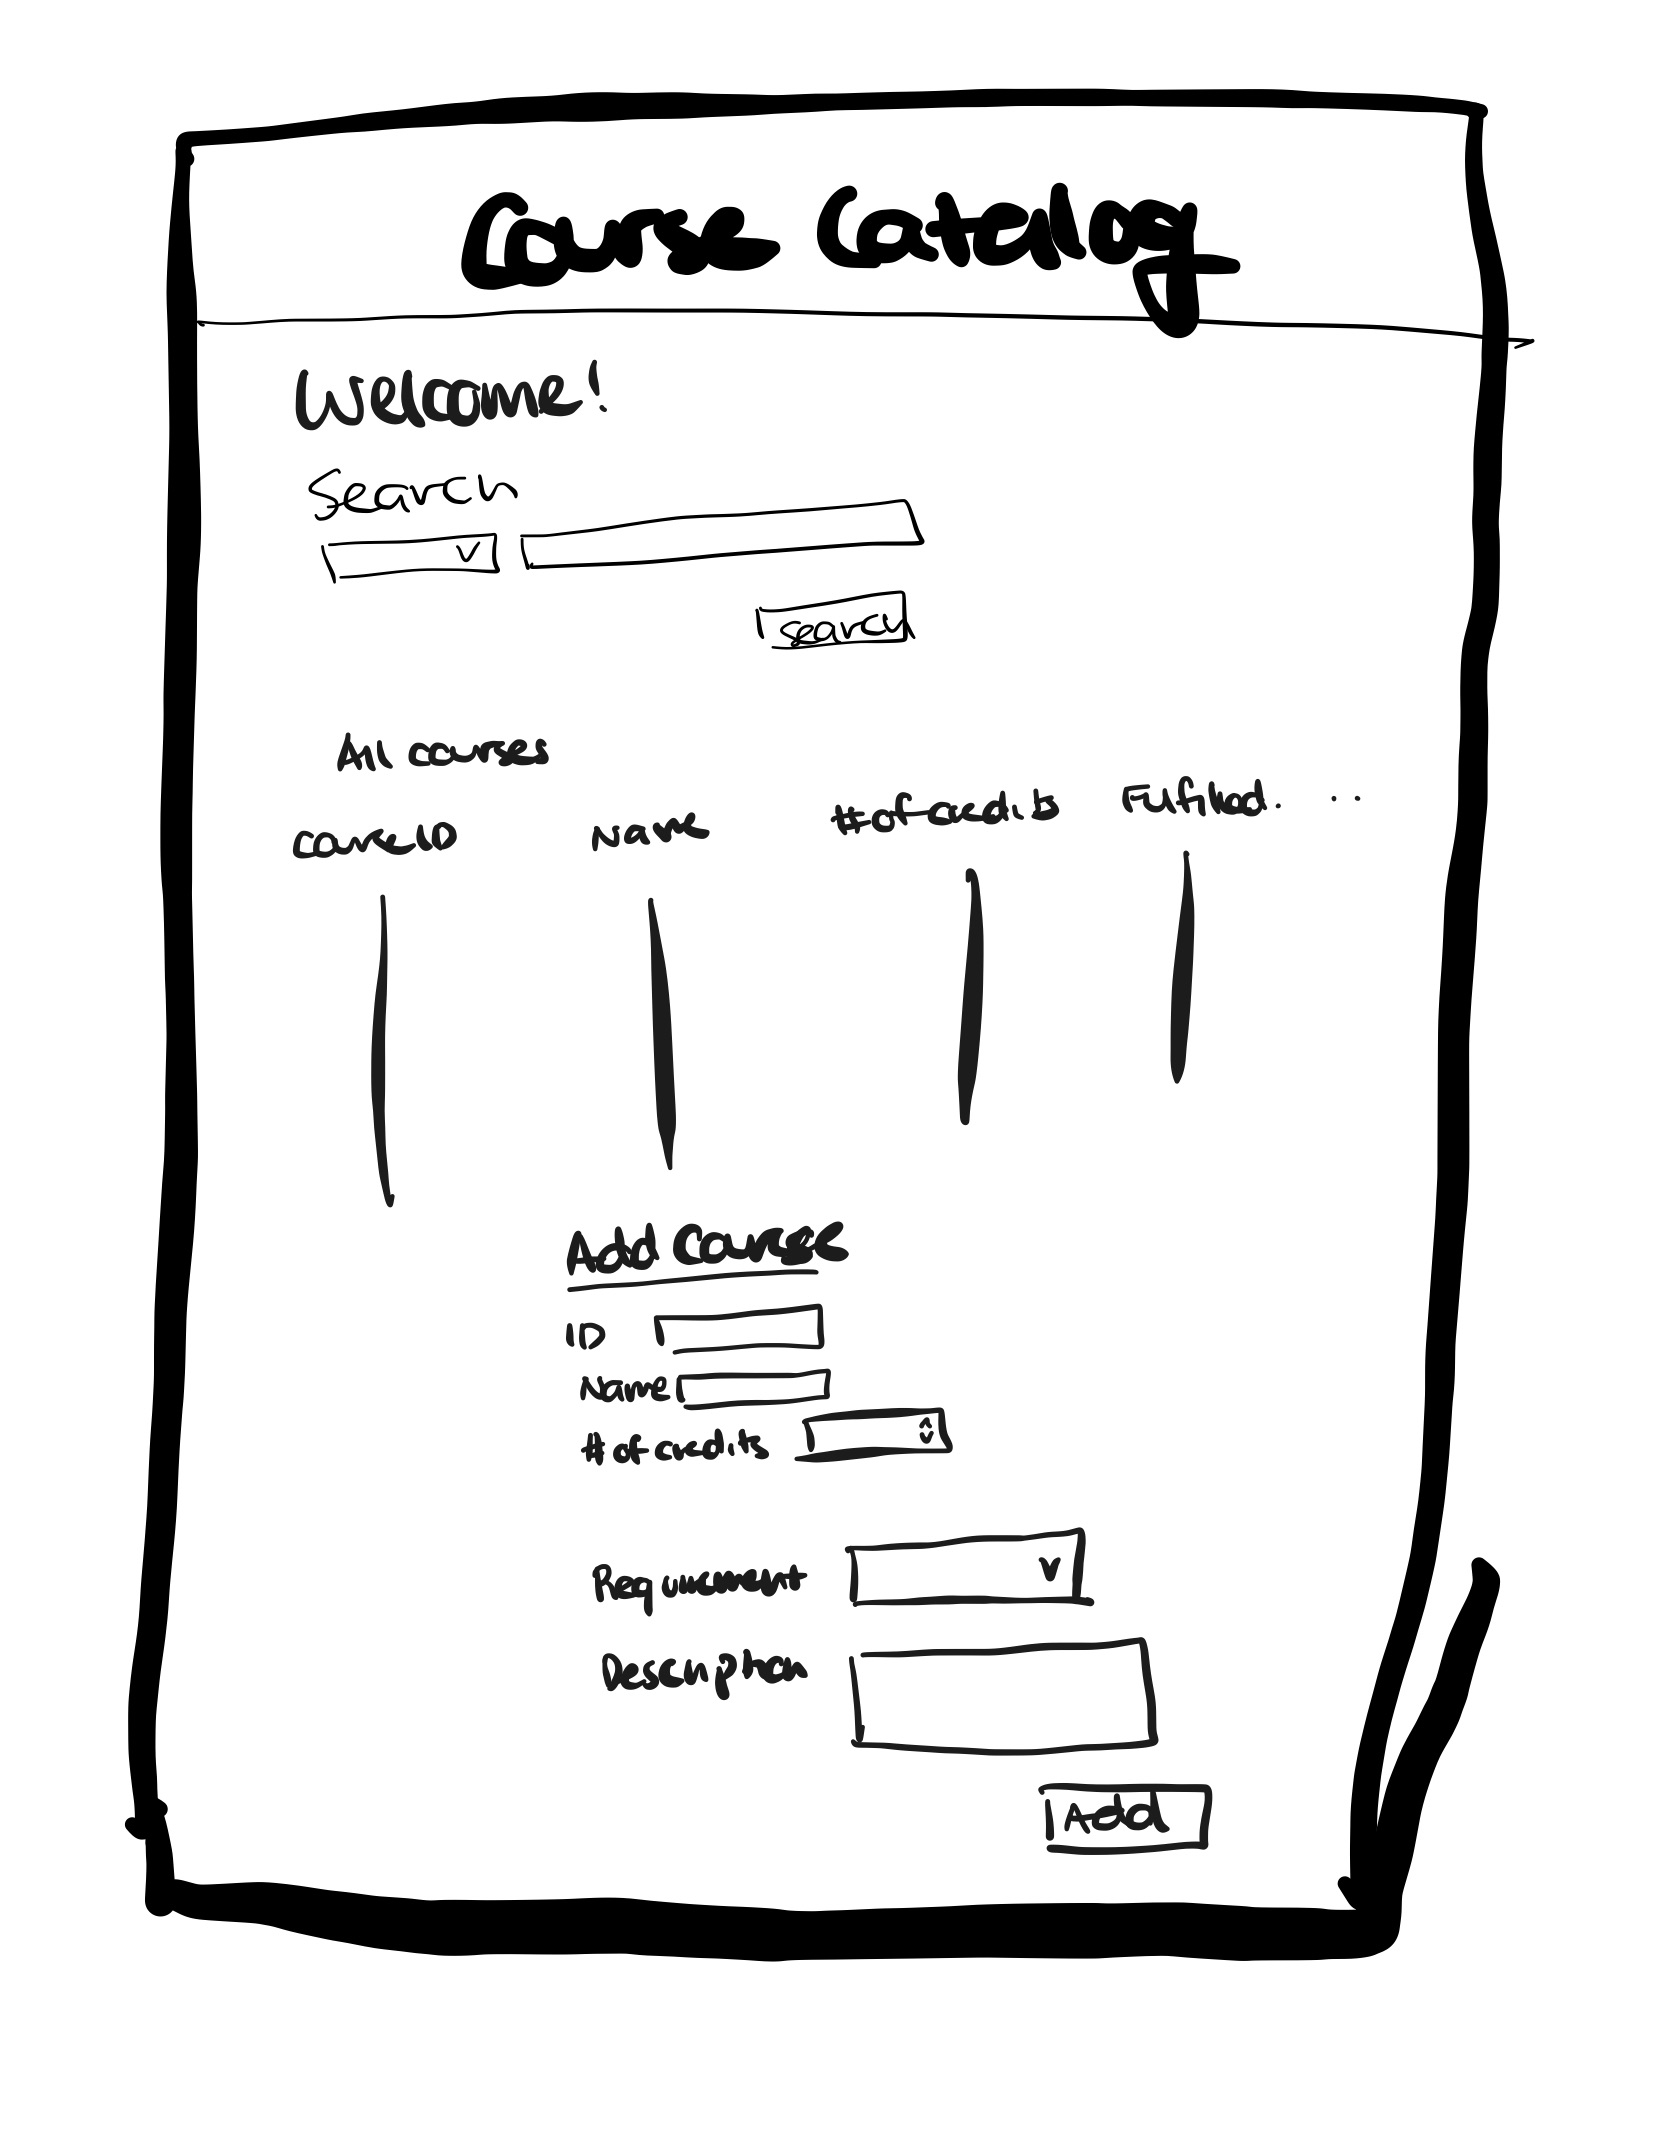 Course Catalog
Welcome!
Search
search
All courses
course ID Name # of credits Fulfilled. ..
Add Course
ID
Name
# of credits
Requirement
Description
Add